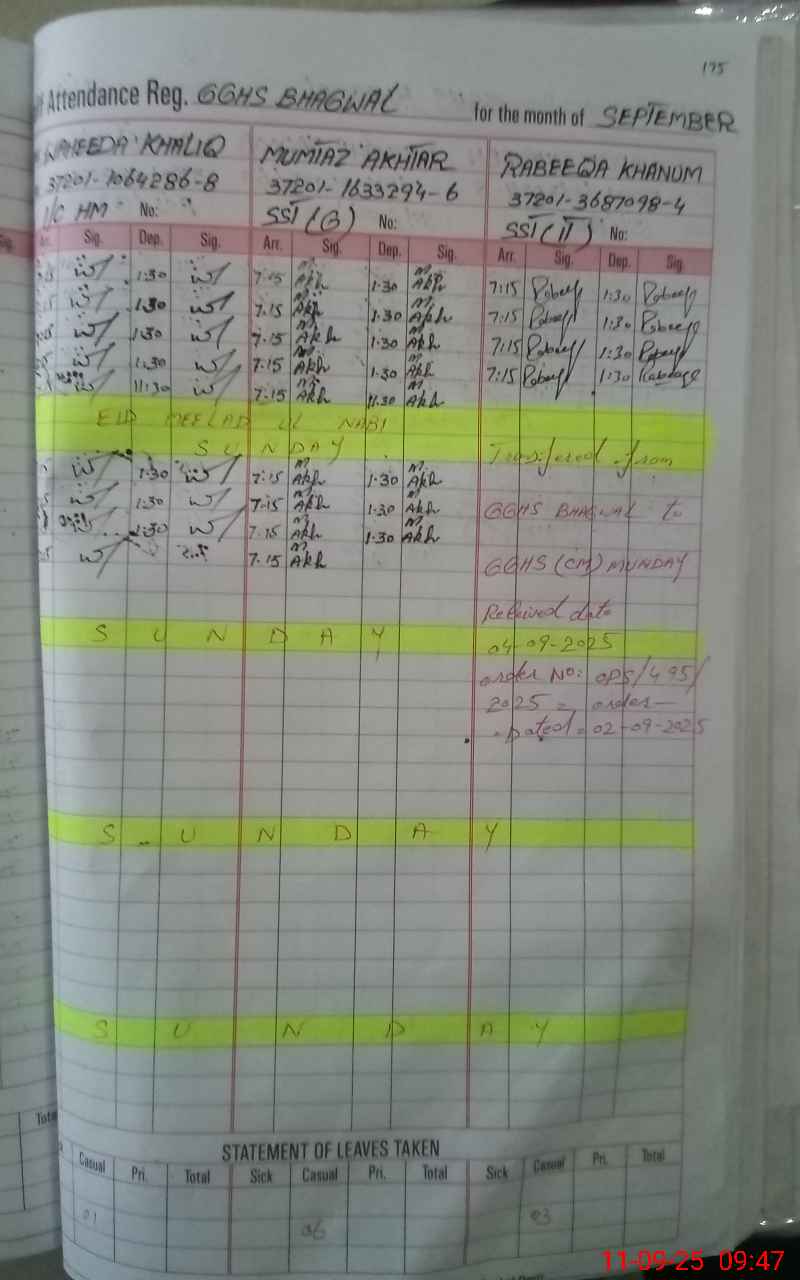 175
Attendance Reg. GGHS BHAGWAL for the month of SEPTEMBER
WAHEEDA KHALIQ MUMTAZ AKHTAR RABEEQA KHANUM
37201-1064286-8 37201-1633294-6 37201-3687098-4
I/C HM No: SST(G) No: SST(IT) No:
Sig. Dep. Sig. Arr. Sig. Dep. Sig. Arr. Sig. Dep. Sig
1:30 7:15 M Akh 1:30 M Akh 7:15 Rabeeq 1:30 Rabeeq
1:30 7:15 M Akh 1:30 M Akh 7:15 Rabeeq 1:30 Rabeeq
1:30 7:15 M Akh 1:30 M Akh 7:15 Rabeeq 1:30 Rabeeq
1:30 7:15 M Akh 1:30 M Akh 7:15 Rabeeq 1:30 Rabeeq
11:30 7:15 M Akh 11:30 M Akh
EID MEELAD UL NABI
SUNDAY Transfered from
1:30 7:15 M Akh 1:30 M Akh
1:30 7:15 M Akh 1:30 M Akh GGHS BHAGWAL to
1:30 7:15 M Akh 1:30 M Akh
7:15 M Akh GGHS (CM) MUNDAY
Relieved date
SUNDAY 04-09-2025
order No: OPS/495/
2025 = order
Dated = 02-09-2025
SUNDAY
SUNDAY
STATEMENT OF LEAVES TAKEN
Casual Pri. Total Sick Casual Pri. Total Sick Casual Pri. Total
01 06 03
11-09-25 09:47